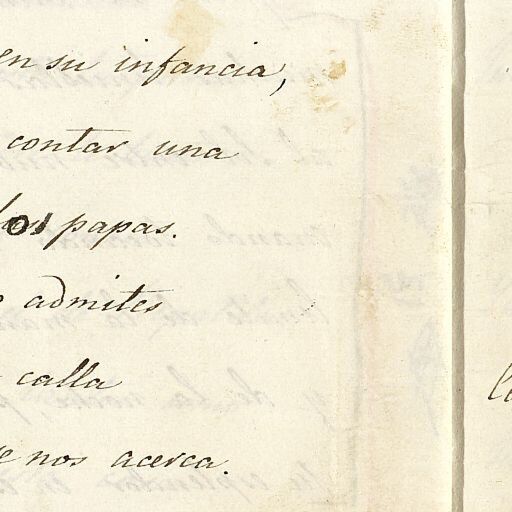 en su infancia,
contar una
los papas.
admites
calla
nos acerca.